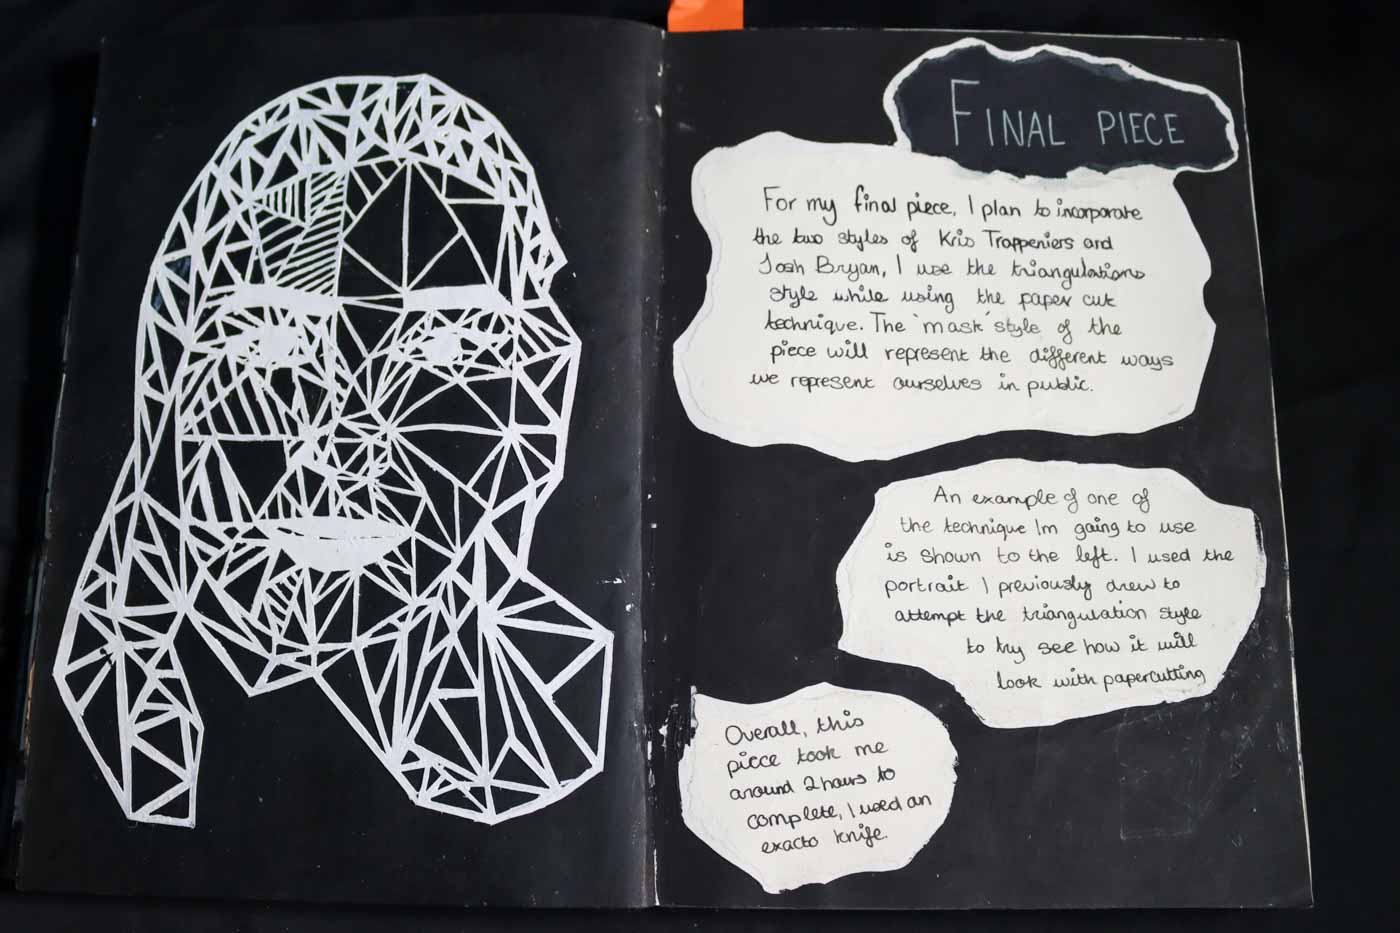 FINAL PIECE
For my final piece, I plan to incorporate
the two styles of Kris Trappeniers and
Josh Bryan, I use the triangulations
style while using the paper cut
technique. The 'mask' style of the
piece will represent the different ways
we represent ourselves in public.
An example of one of
the technique Im going to use
is shown to the left. I used the
portrait I previously drew to
attempt the triangulation style
to try see how it will
look with papercutting
Overall, this
piece took me
around 2 hours to
complete, I used an
exacto knife.